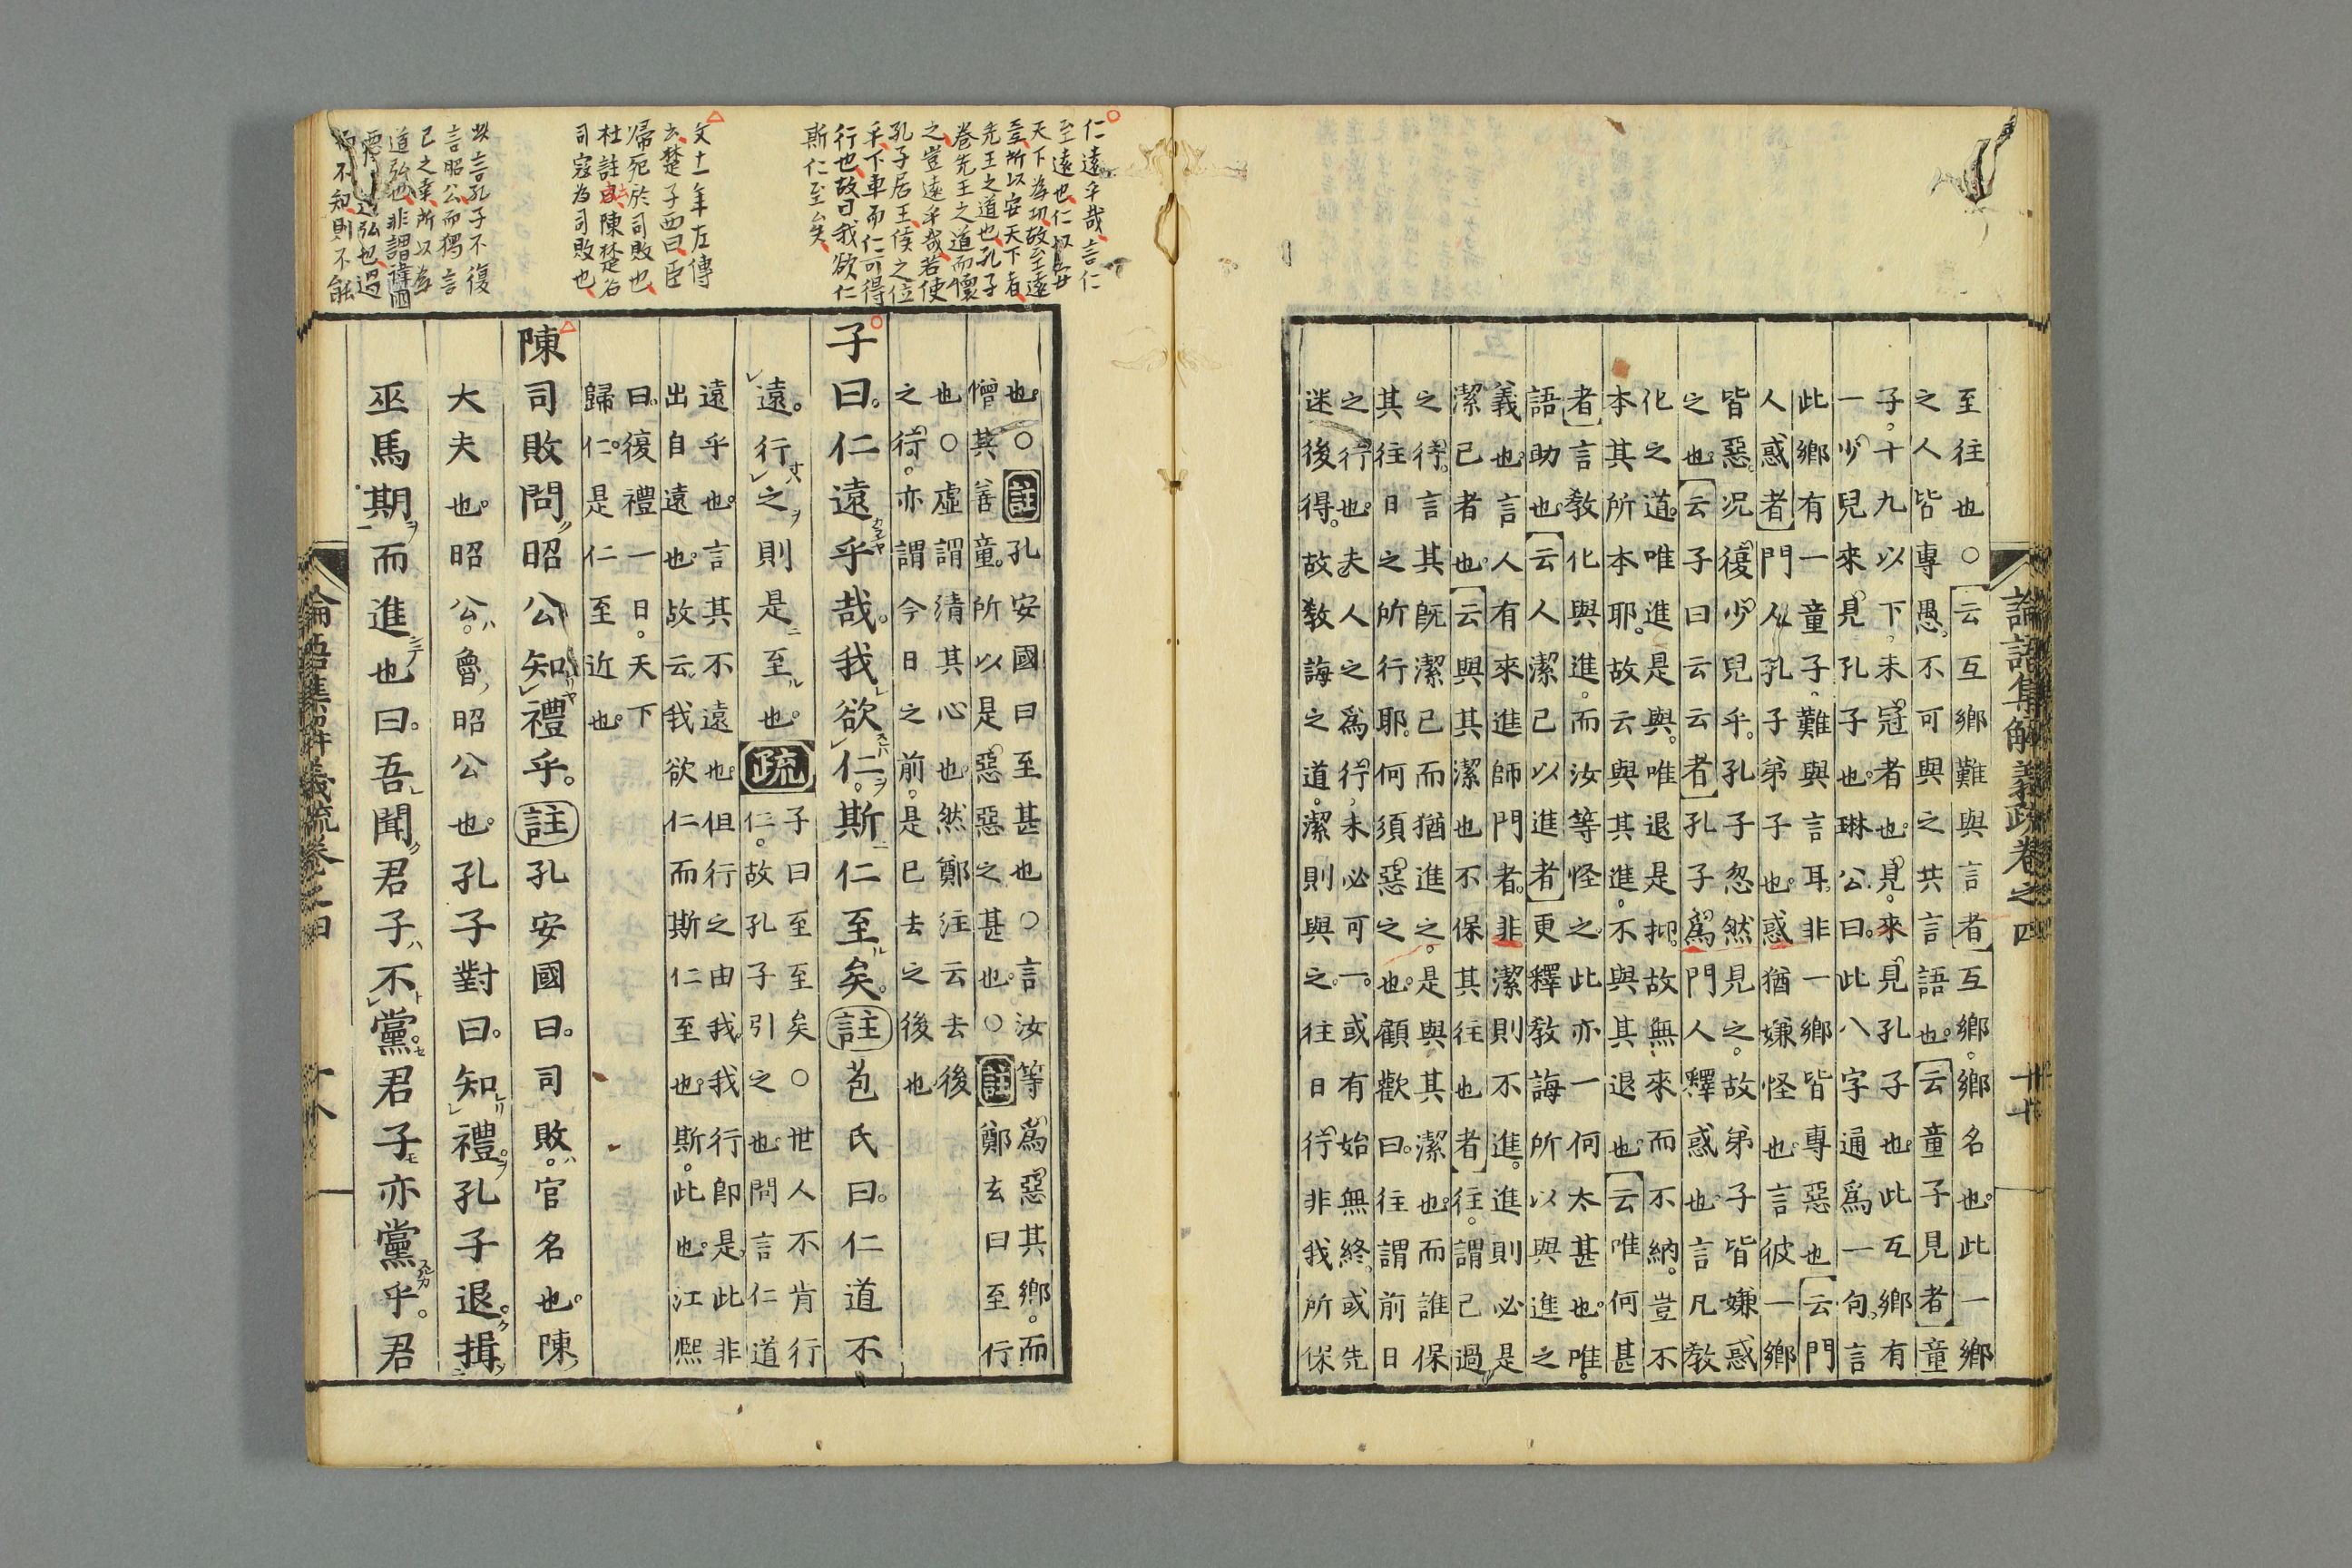 論語集解義疏卷之四
至往也○云互鄉難與言者互鄉。鄉名也。此一鄉
之人皆專愚。不可與之共言語也。云童子見者童
子。十九以下。未冠者也。見。來見孔子也。此互鄉有
一少兒來見孔子也。琳公曰。此八字通爲一句。言
此鄉有一童子。難與言耳。非一鄉皆專惡也云門
人惑者門人。孔子弟子也。惑猶嫌怪也。言彼一鄉
皆惡。況復少兒乎。孔子忽然見之。故弟子皆嫌惑
之也。云子曰云云者孔子爲門人釋惑也。言凡敎
化之道。唯進是與。唯退是抑。故無來而不納。豈不
本其所本耶。故云與其進。不與其退也。云唯何甚
者言敎化與進。而汝等怪之。此亦一何太甚也。唯。
語助也。云人潔己以進者更釋敎誨所以與進之
義也。言人有來進師門者。非潔則不進。進則必是
潔己者也。云與其潔也不保其往也者往。謂己過
之行。言其旣潔己而猶進之。是與其潔也。而誰保
其往日之所行耶。何須惡之也。顧歡曰。往謂前日
之行也。夫人之爲行。未必可一。或有始無終。或先
迷後得。故敎誨之道。潔則與之。往日行非我所保
也。○註孔安國曰至甚也。○言汝等爲惡其鄉。而
憎其善童。所以是惡惡之甚也。○註鄭玄曰至行
也○虛謂清其心也。然鄭注云去後
之行。亦謂今日之前。是已去之後也
子曰。仁遠乎哉。我欲仁。斯仁至矣。註苞氏曰。仁道不
遠。行之則是至也。疏子曰至至矣○世人不肯行
仁。故孔子引之也。問言仁道
遠乎也。言其不遠也。但行之由我。我行卽是。此非
出自遠也。故云。我欲仁而斯仁至也。斯。此也。江熙
曰。復禮一日。天下
歸仁。是仁至近也。
陳司敗問昭公知禮乎。註孔安國曰。司敗。官名也。陳
大夫也。昭公。魯昭公也。孔子對曰。知禮。孔子退。揖
巫馬期而進也曰。吾聞君子不黨。君子亦黨乎。君
仁遠乎哉言仁
至遠也仁以安
天下為功故至遠
豈所以安天下者
先王之道也孔子
卷先王之道而懷
之豈遠乎哉若使
孔子居王侯之位
乎下車而仁可得
行也故曰我欲仁
斯仁至矣
文十一年左傳
楚子西曰臣
歸死於司敗也
杜註曰陳楚名
司寇為司敗也
此言孔子不復
言昭公而獨言
己之幸所以為
道弘也非謂諱國
道弘也過
而不知則不能